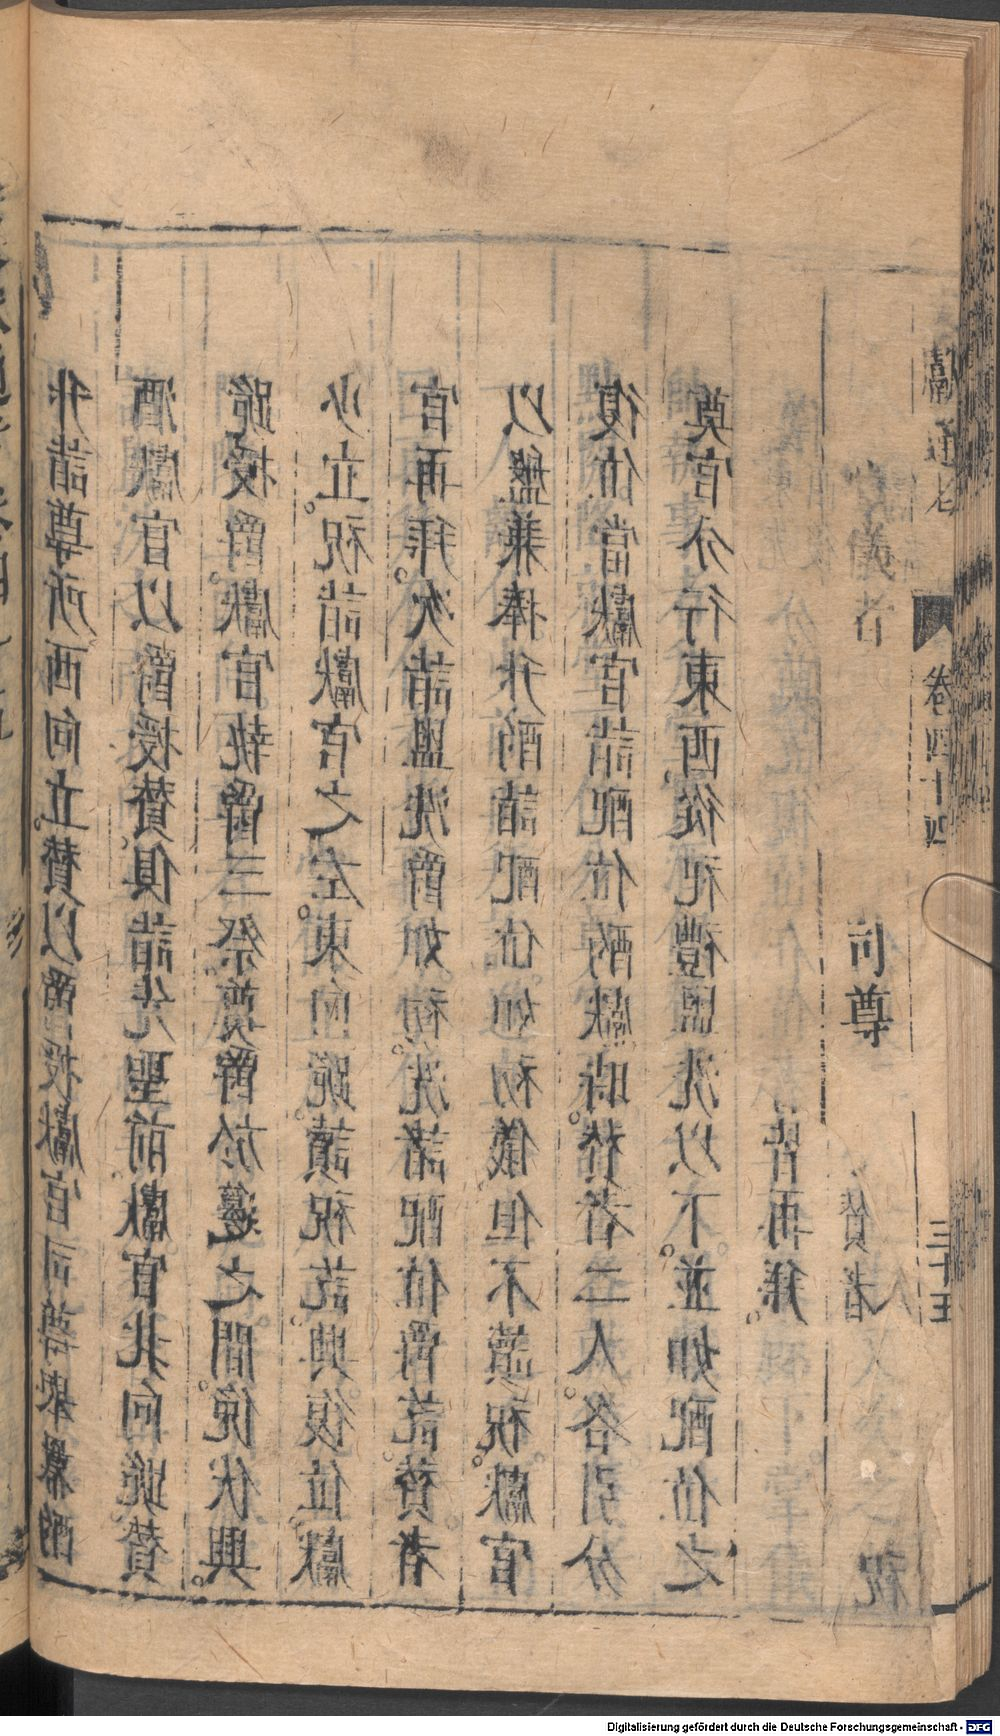 升詣尊所。西向立。贊以爵授獻官司尊舉冪酌
酒獻官以爵授贊。俱詣先聖前獻官北向跪贊
跪授爵。獻官執爵三祭奠爵於籩之間。俛伏興。
少立。祝詣獻官之左。東向跪讀祝訖。興復位。獻
官再拜。次詣盥洗爵如初。洗諸配位爵訖贊者
以盤兼捧升酌詣配位。如初儀但不讀祝。獻官
復位當獻官詣配位酌獻時。贊者二人。各引分
奠官分行東西從祀禮盥洗以下。並如配位之
皆再拜。
司尊
贊者
祝
獻通考
卷四十四
三十五
Digitalisierung gefördert durch die Deutsche Forschungsgemeinschaft - DFG